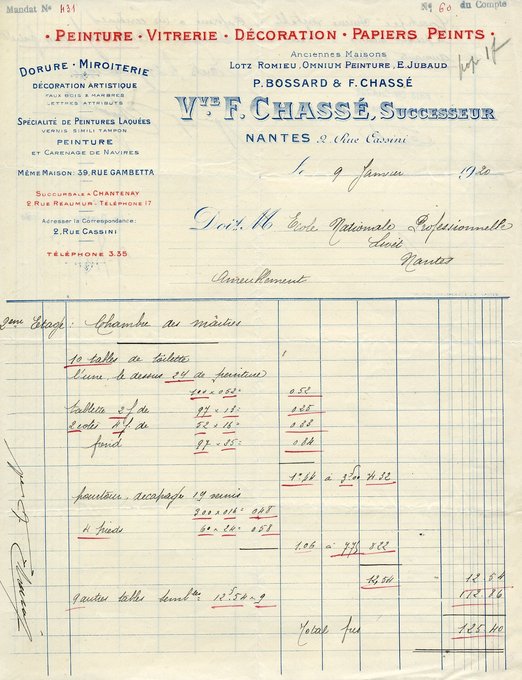 Mandat No 431
No 60 du Compte
· PEINTURE · VITRERIE · DÉCORATION · PAPIERS PEINTS ·
DORURE · MIROITERIE
DÉCORATION ARTISTIQUE
FAUX BOIS & MARBRES
LETTRES ATTRIBUTS
SPÉCIALITÉ DE PEINTURES LAQUÉES
VERNIS SIMILI TAMPON
PEINTURE
ET CARENAGE DE NAVIRES
MÊME MAISON: 39, RUE GAMBETTA
SUCCURSALE À CHANTENAY
2 RUE REAUMUR - TÉLÉPHONE 17
Adresser la Correspondance:
2, RUE CASSINI
TÉLÉPHONE 3.35
Anciennes Maisons
LOTZ ROMIEU, OMNIUM PEINTURE, E. JUBAUD
P. BOSSARD & F. CHASSÉ
VVE F. CHASSÉ, SUCCESSEUR
NANTES 2, Rue Cassini
Le 9 Janvier 1920
Doit M Ecole Nationale Professionnelle
Livet
Nantes
Ameublement
2eme Etage: Chambre des maîtres
10 tables de toilette
l'une, le dessus 24 de peinture
101 x 052 = 0.52
tablette 2 f de 97 x 13 = 0.25
2 cotés 4 f de 52 x 16 =
fond 97 x 85 = 0.84
à 3f00 4 32
décapage 19 minis
300 x 016 = 048
4 pieds 60 x 24 = 0.58
1.06 à 8 22
12 54 12 54
9 autres tables sembles 12f54 x 9 112 86
Total frcs 125 40